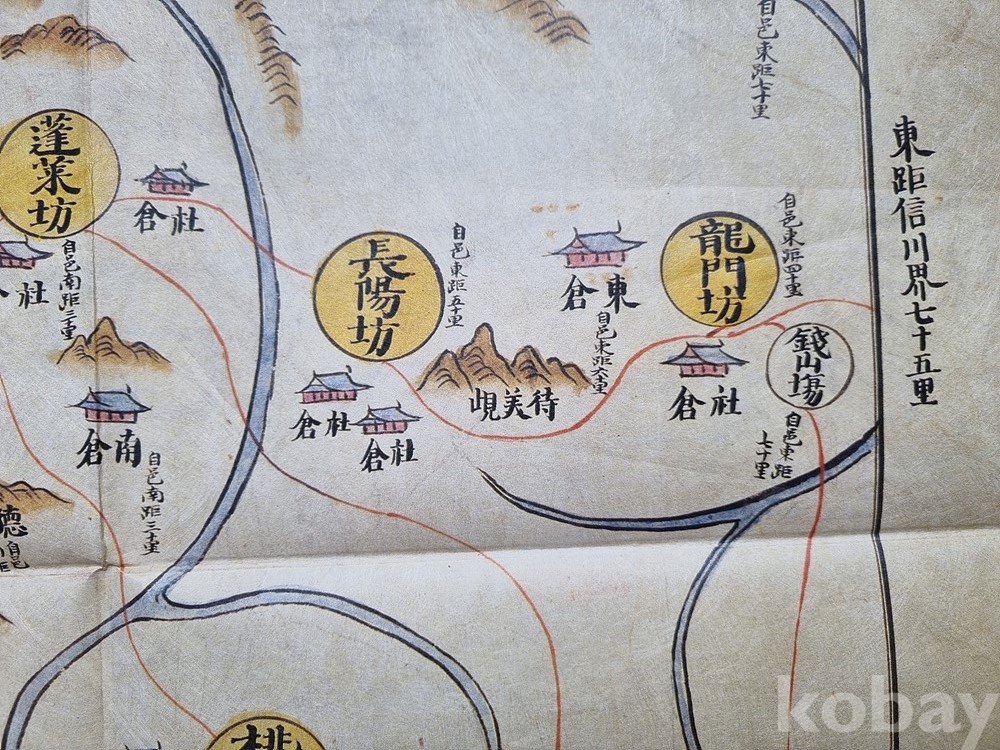 自邑東距七十里
東距信川界七十五里
蓬萊坊
社倉
社
自邑南距二十里
長陽坊
自邑東距五十里
東倉
自邑東距六十里
龍門坊
自邑東距四十里
錢山場
自邑東距
七十里
社倉
待美峴
社倉
社倉
南倉
自邑南距三十里
德
自邑
桃
kobay